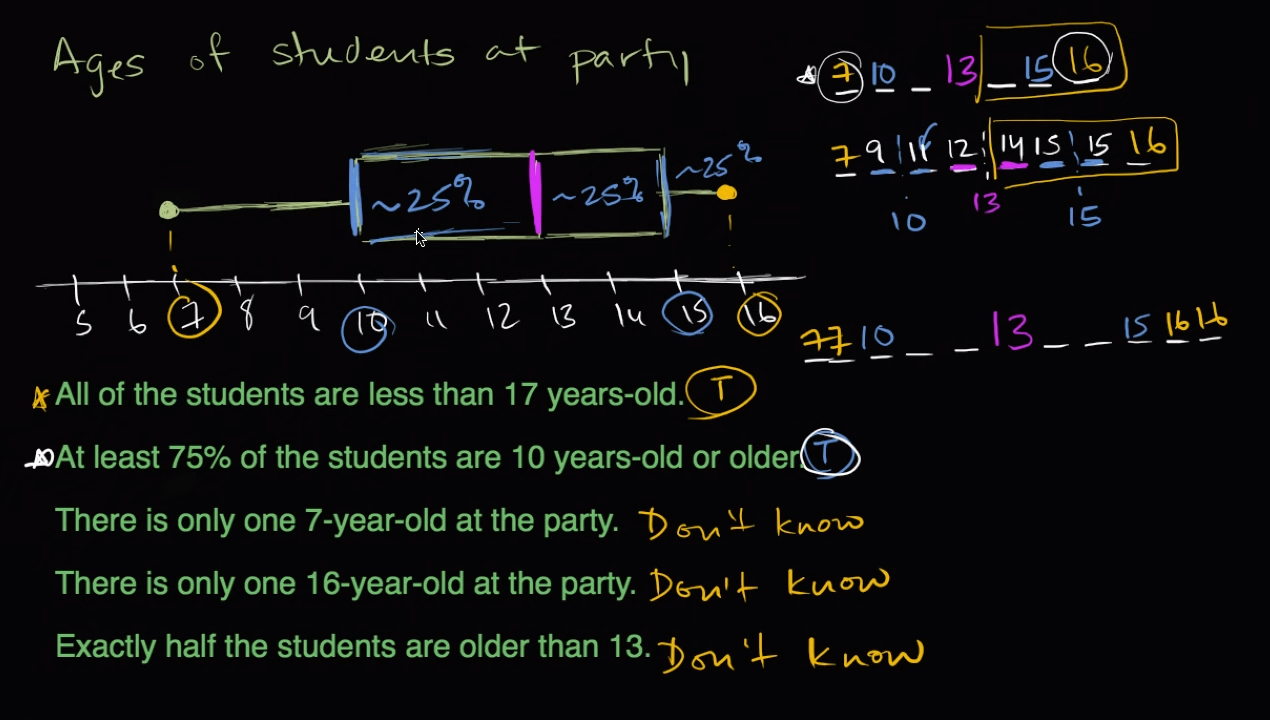 Ages of students at party
7 10 _ 13 _ 15 16
7 9 11 12 14 15 15 16
13
10 15
~25% ~25% ~25%
5 6 7 8 9 10 11 12 13 14 15 16
7 7 10 _ _ 13 _ _ 15 16 16
All of the students are less than 17 years-old. T
At least 75% of the students are 10 years-old or older. T
There is only one 7-year-old at the party. Don't know
There is only one 16-year-old at the party. Don't know
Exactly half the students are older than 13. Don't know